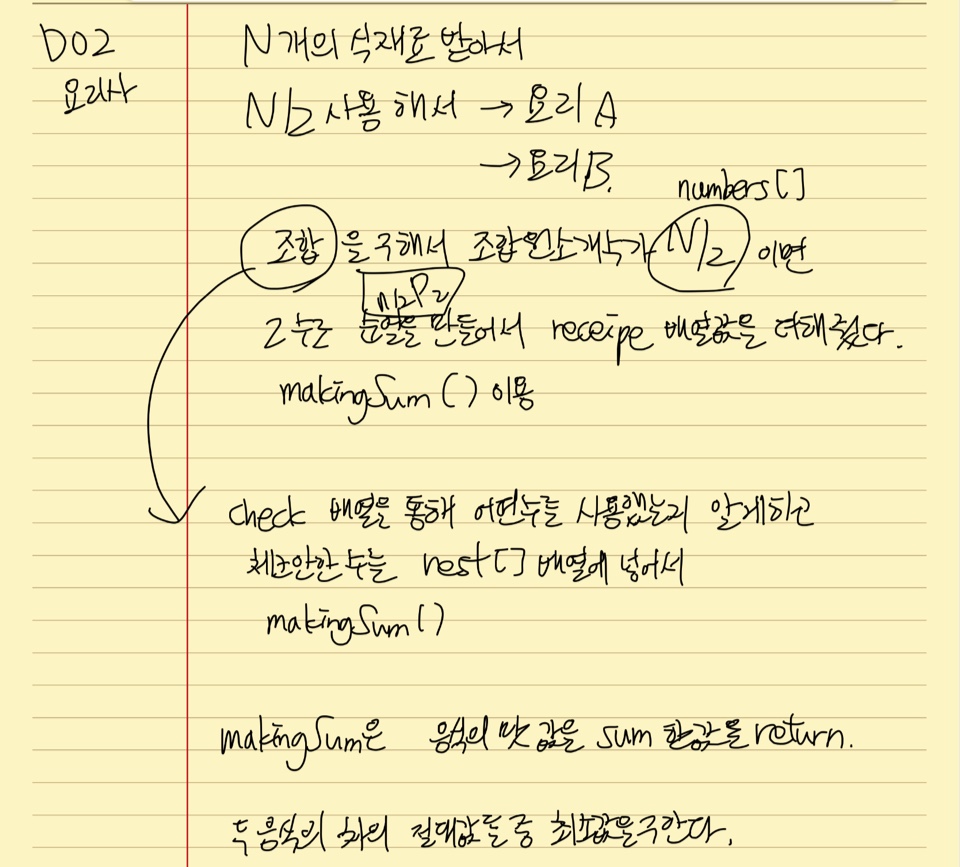 D02
요리사
N개의 식재료 받아서
N/2 사용해서 → 요리 A
→ 요리 B.
numbers[]
조합을 구해서 조합원소개수가 N/2 이면
n/2P2
2수는 순열을 만들어서 receipe 배열값을 더해줬다.
makingSum() 이용
check 배열을 통해 어떤수를 사용했는지 알게하고
체크안한 수는 rest[] 배열에 넣어서
makingSum()
makingSum은 음식의 맛 값을 sum 한값을 return.
두 음식의 차의 절대값들 중 최소값을 구한다.